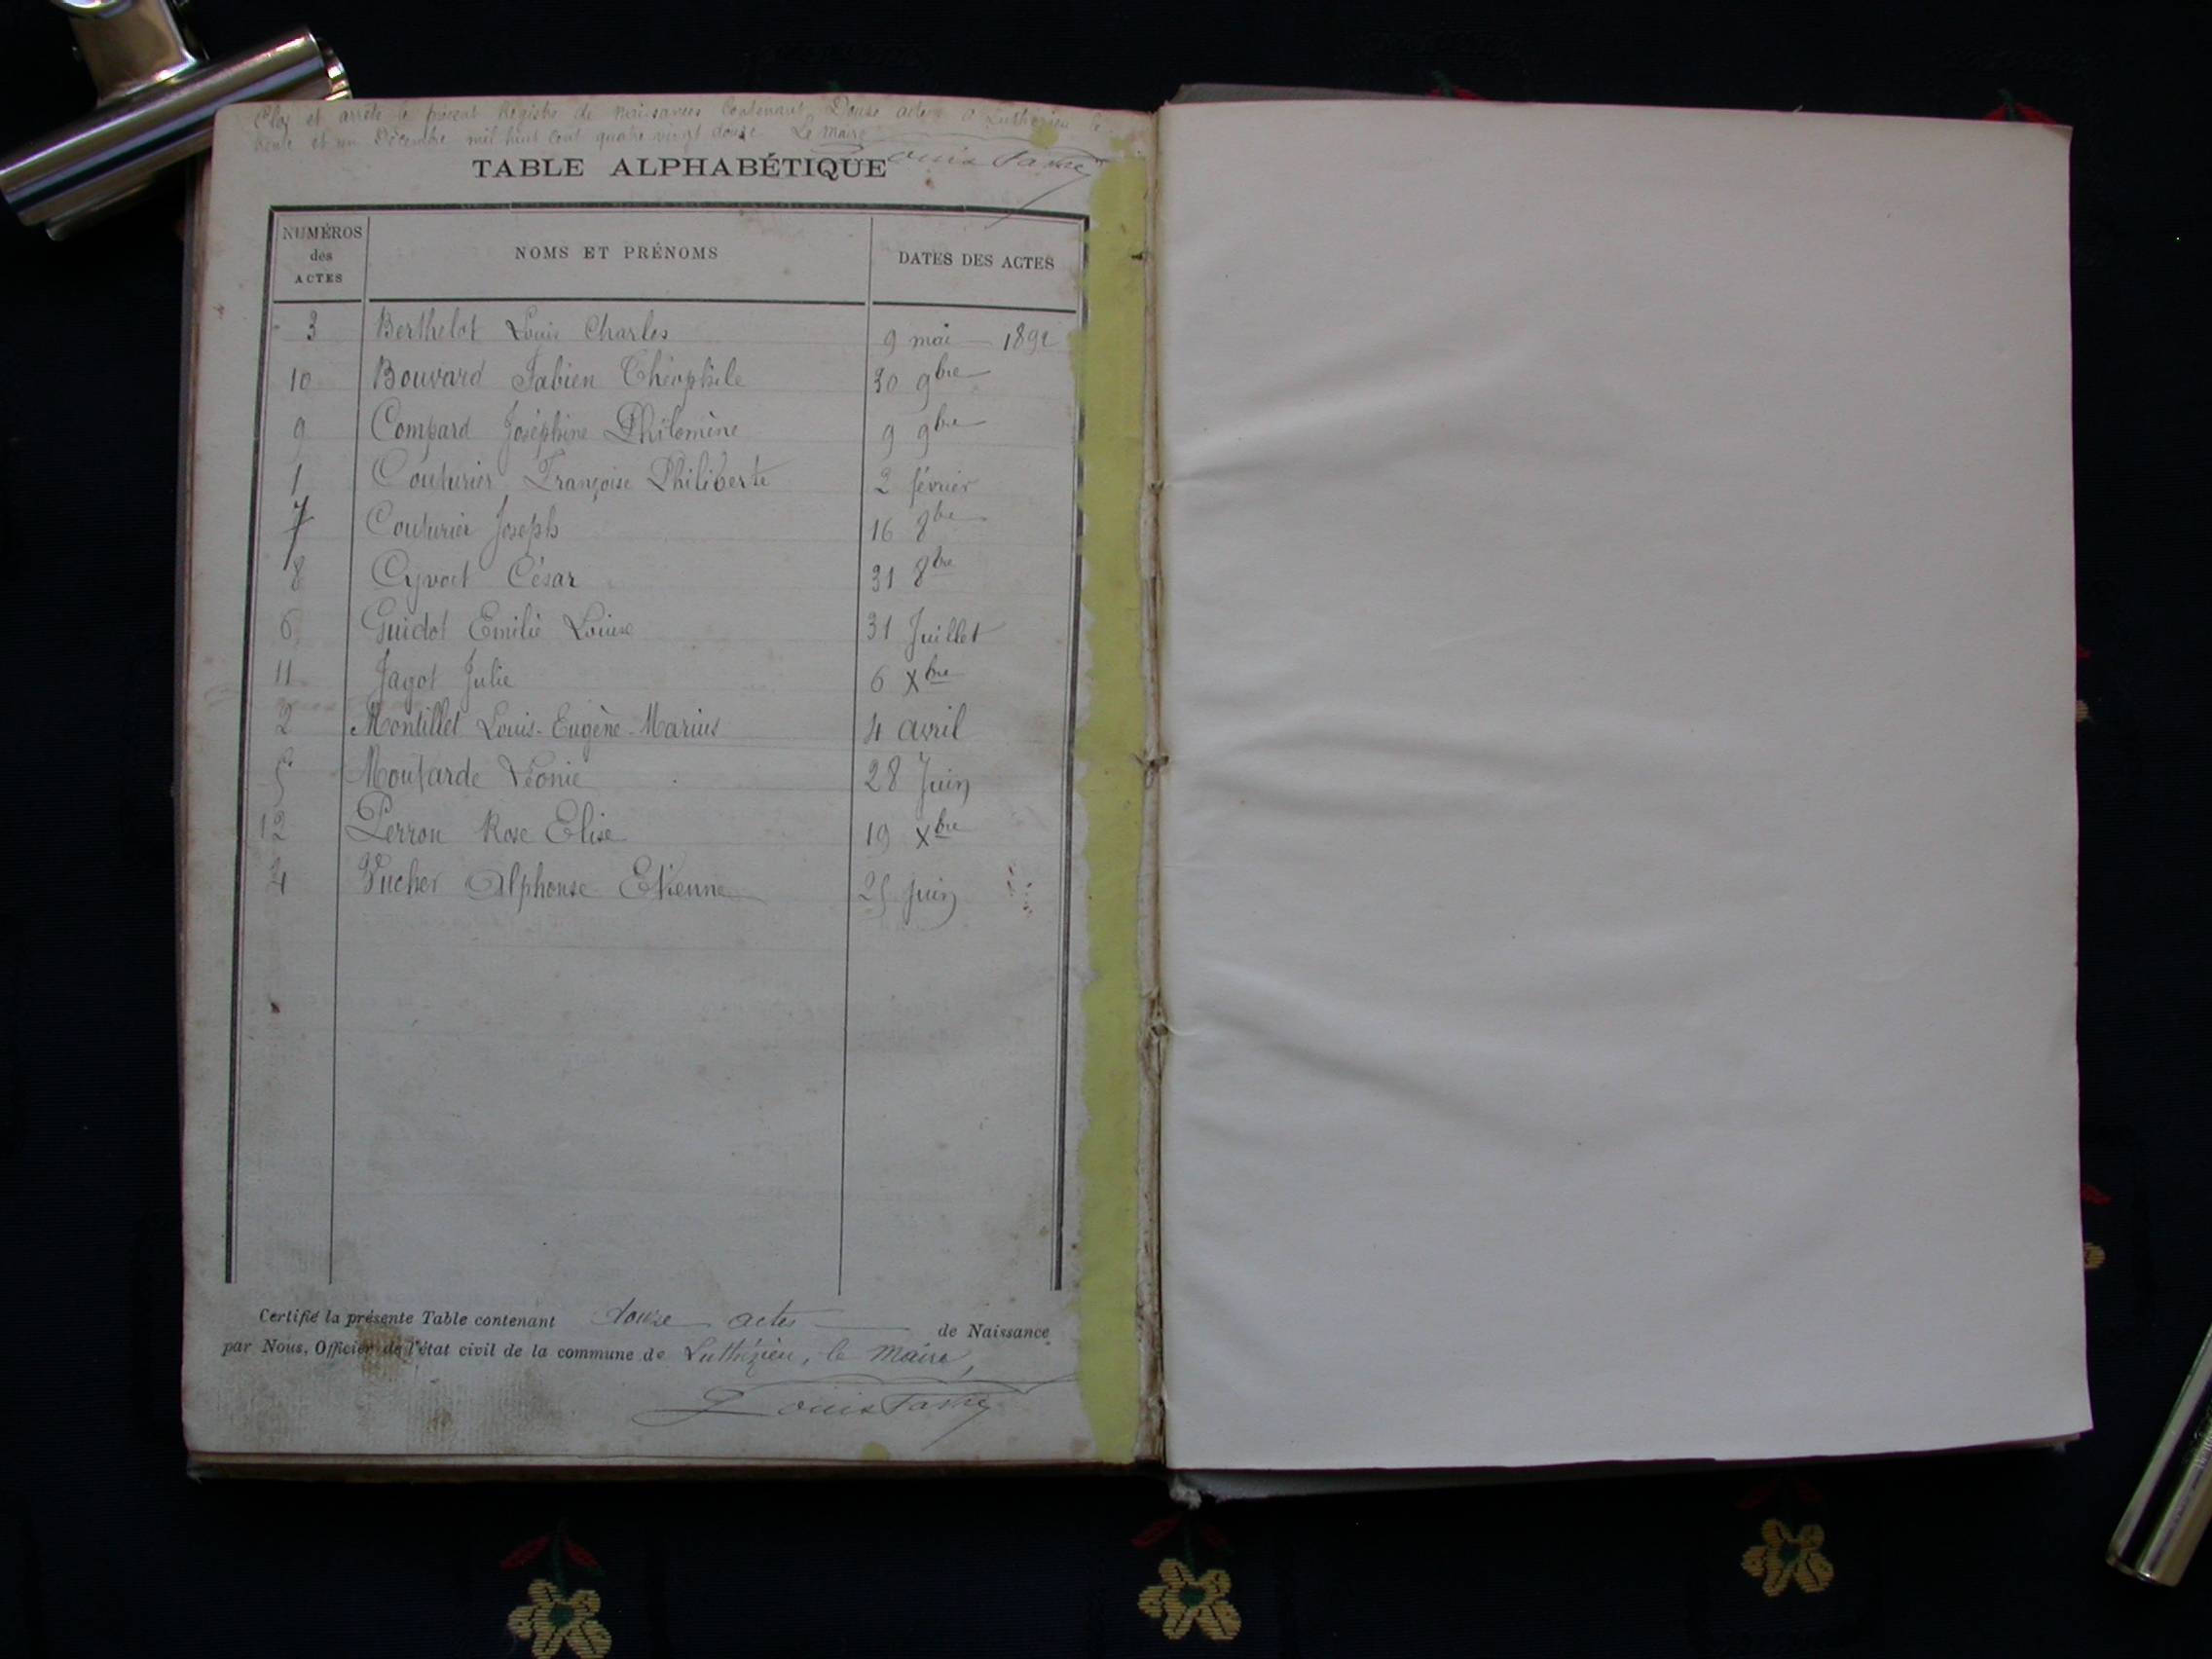 Clos et arrêté le présent Registre de naissances contenant Douze actes à Luthézieu le
trente et un Décembre mil huit cent quatre vingt douze Le Maire
TABLE ALPHABÉTIQUE
NUMÉROS des ACTES NOMS ET PRÉNOMS DATES DES ACTES
3 Berthelot Louis Charles 9 mai 1892
10 Bouvard Fabien Théophile 30 9bre
9 Compard Joséphine Philomène 9 9bre
1 Couturier Françoise Philiberte 2 février
7 Couturier Joseph 16 8bre
8 Cyvoct César 31 8bre
6 Guidot Emilie Louise 31 Juillet
11 Jagot Julie 6 Xbre
2 Montillet Louis-Eugène-Marius 4 avril
5 Moutarde Léonie 28 Juin
12 Perron Rose Elise 19 Xbre
4 Vucher Alphonse Etienne 25 juin
Certifié la présente Table contenant douze actes de Naissance
par Nous, Officier de l'état civil de la commune de Luthézieu, le Maire,
Louis